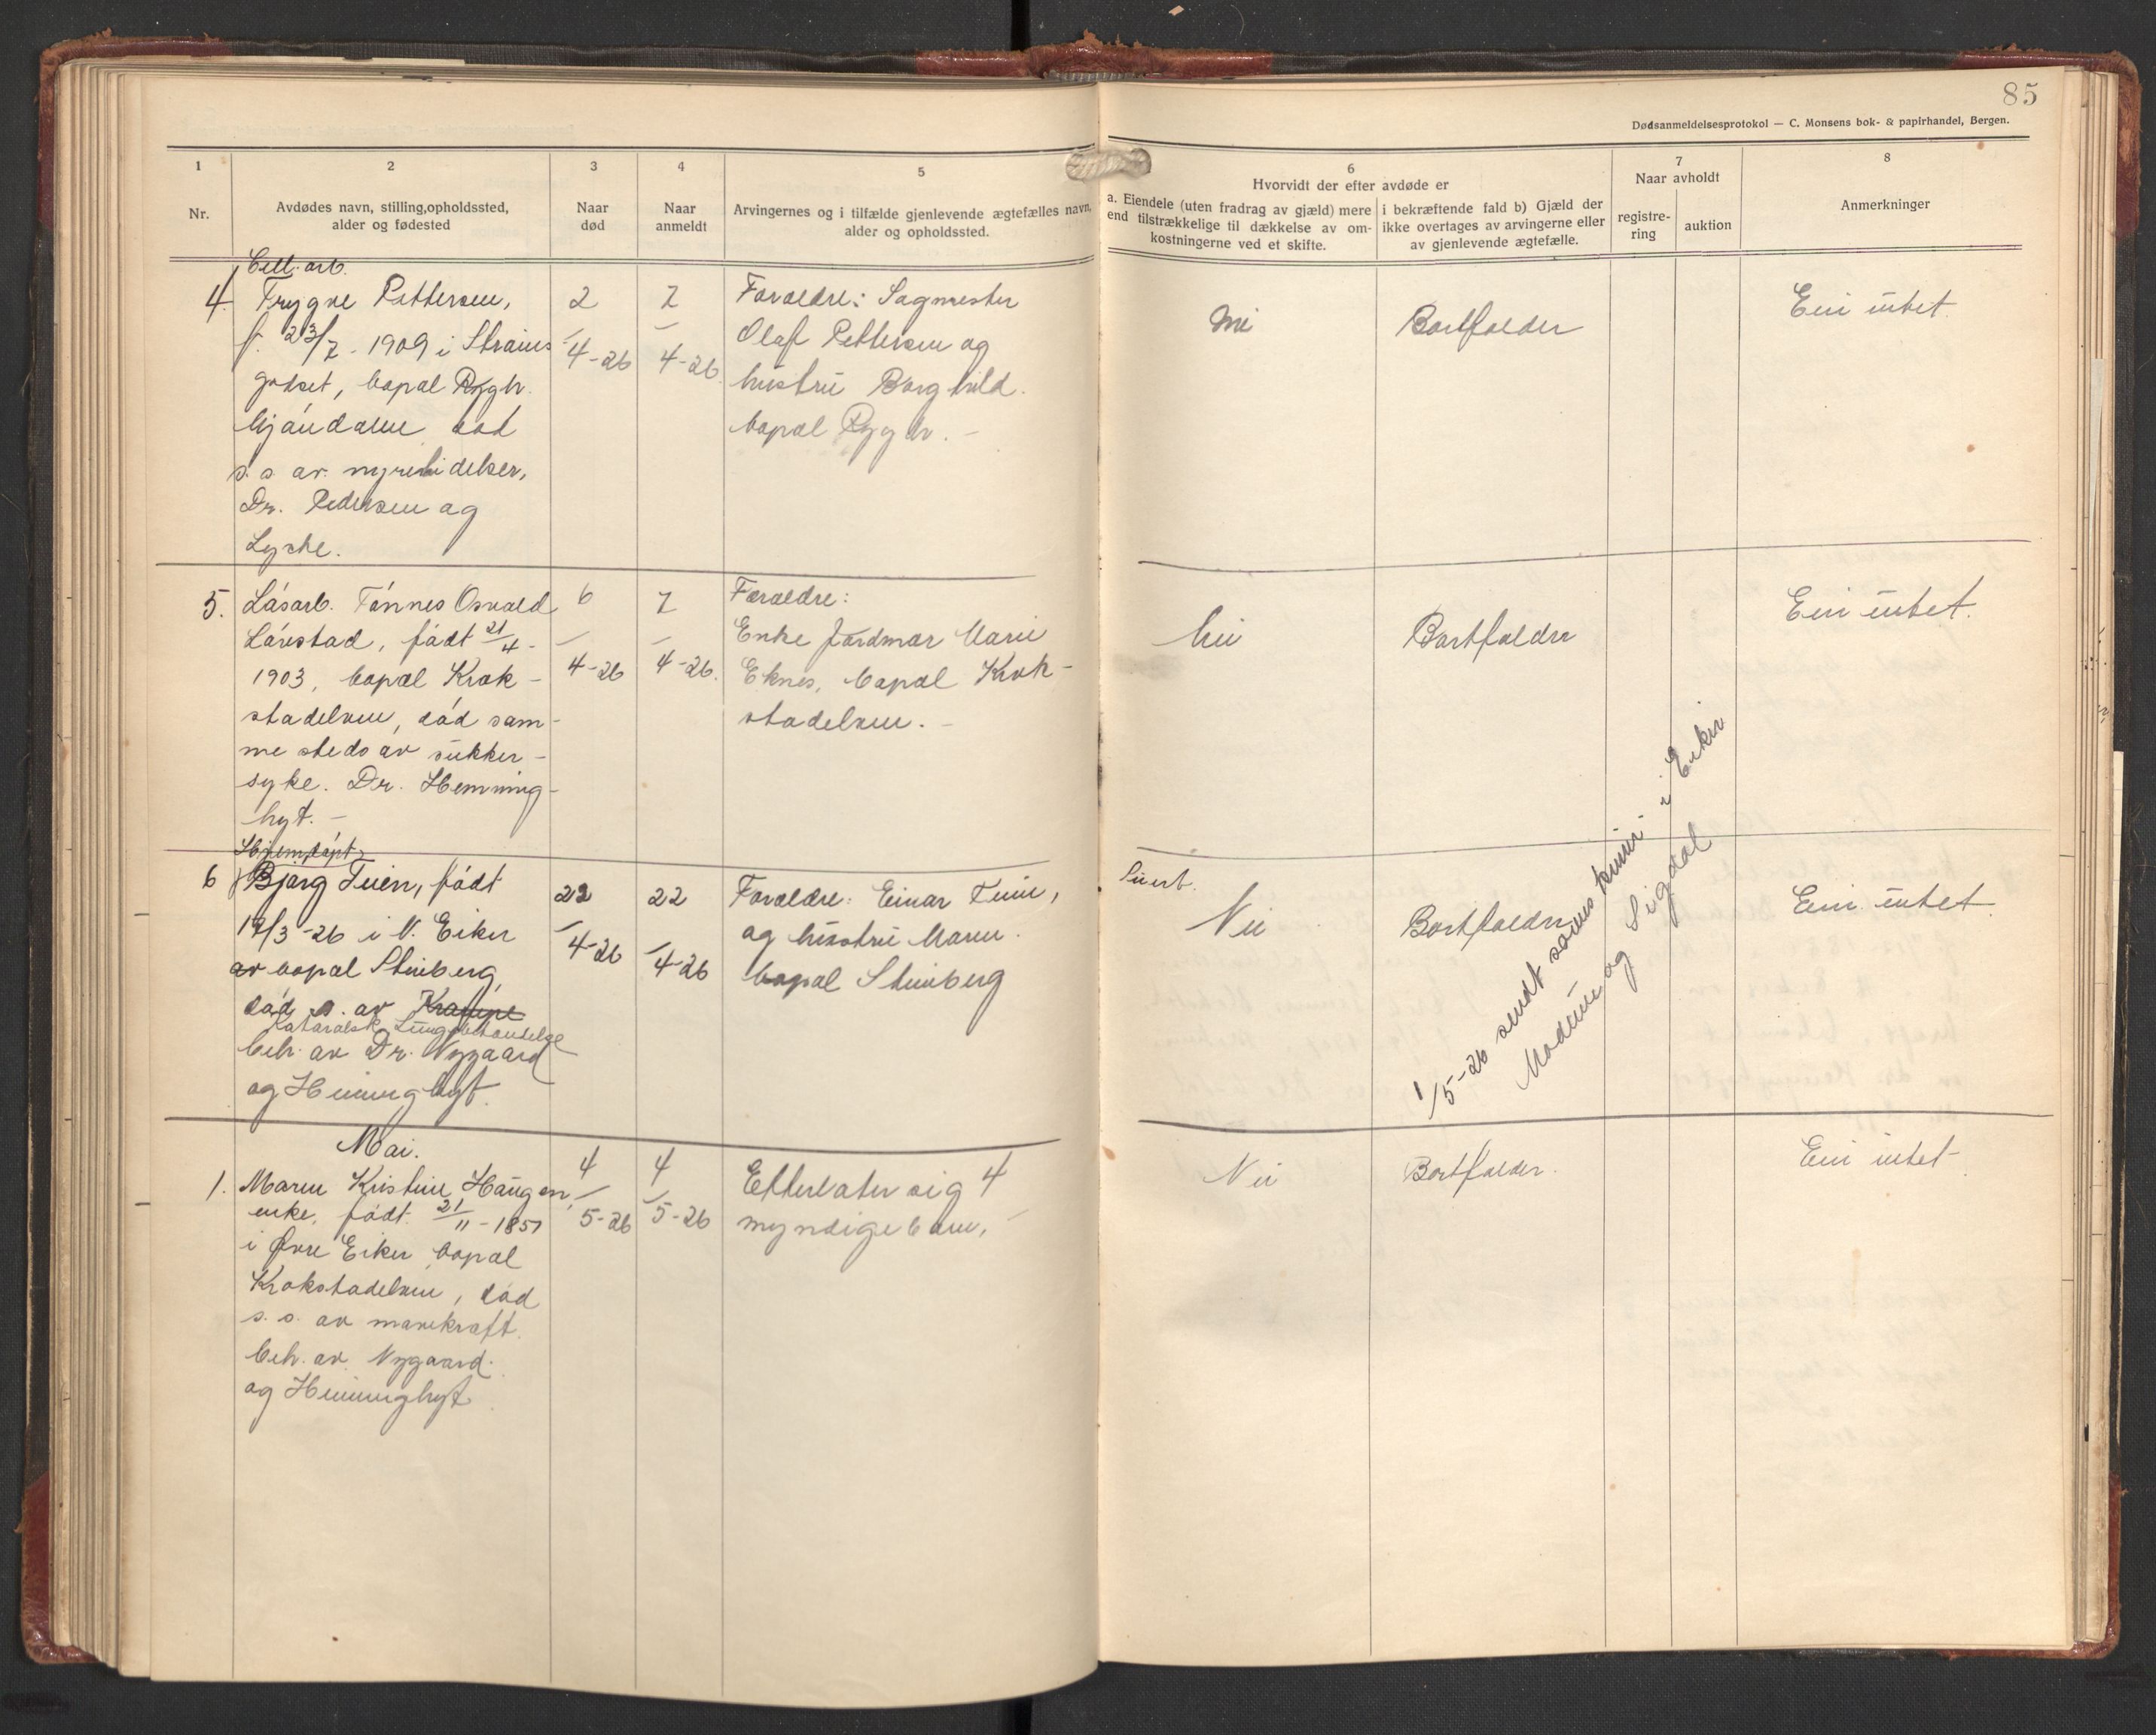 85
Dødsanmeldelsesprotokol — C. Monsens bok- & papirhandel, Bergen.
1
2
3
4
5
6
7
8
Nr.
Avdødes navn, stilling,opholdssted,
alder og fødested
Naar
død
Naar
anmeldt
Arvingernes og i tilfælde gjenlevende ægtefælles navn,
alder og opholdssted.
Hvorvidt der efter avdøde er
a. Eiendele (uten fradrag av gjæld) mere
end tilstrækkelige til dækkelse av om-
kostningerne ved et skifte.
i bekræftende fald b) Gjæld der
ikke overtages av arvingerne eller
av gjenlevende ægtefælle.
Naar avholdt
registre-
ring
auktion
Anmerkninger
Cell. arb.
4. Trygve Pettersen,
f. 23/7 - 1909 i Strøms
godset, bopæl Rygh.
Mjøndalen død
s. s. av nyrelidelser,
Dr. Pedersen og
Lyche.
2
4-26
7
4-26.
Forældre: Sagmester
Olaf Pettersen og
hustru Borghild.
bopæl Rygh. -
Nei
Bortfalder
Eier intet.
5. Løsarb. Tønnes Osvald
Lørestad, født 21/4 -
1903, bopæl Krok-
stadelven, død sam-
me steds av sukker-
syke. Dr. Hemming-
hyt. -
6
4-26
7
4-26.
Forældre:
Enke Marie
Eknes, bopæl Krok-
stadelven. -
Nei
Bortfalder
Eier intet.
Hjemdøpt
6 Bjørg Teien, født
19/3 -26 i N. Eiker
av bopæl Stenberg,
død s. av Krampe
Kataralsk Lungebetendelse
beh. av Dr. Nygaard
og Hemminghyt.
22
4-26
22
4-26
Forældre: Einar Teien,
og hustru Maren.
bopæl Stenberg
Nei
Bortfalder
Eier intet.
1/5-26 sendt i Eiker
Modum og Sigdal
Mai.
1. Maren Kristine Haugen,
enke, født 21/11 - 1851
i Øvre Eiker bopæl
Krokstadelven, død
s. s. av mavekræft.
beh. av Nygaard.
og Hemminghyt
4
5-26
4
5-26
Etterlater sig 4
myndige barn, -
Nei
Bortfalder.
Eier intet